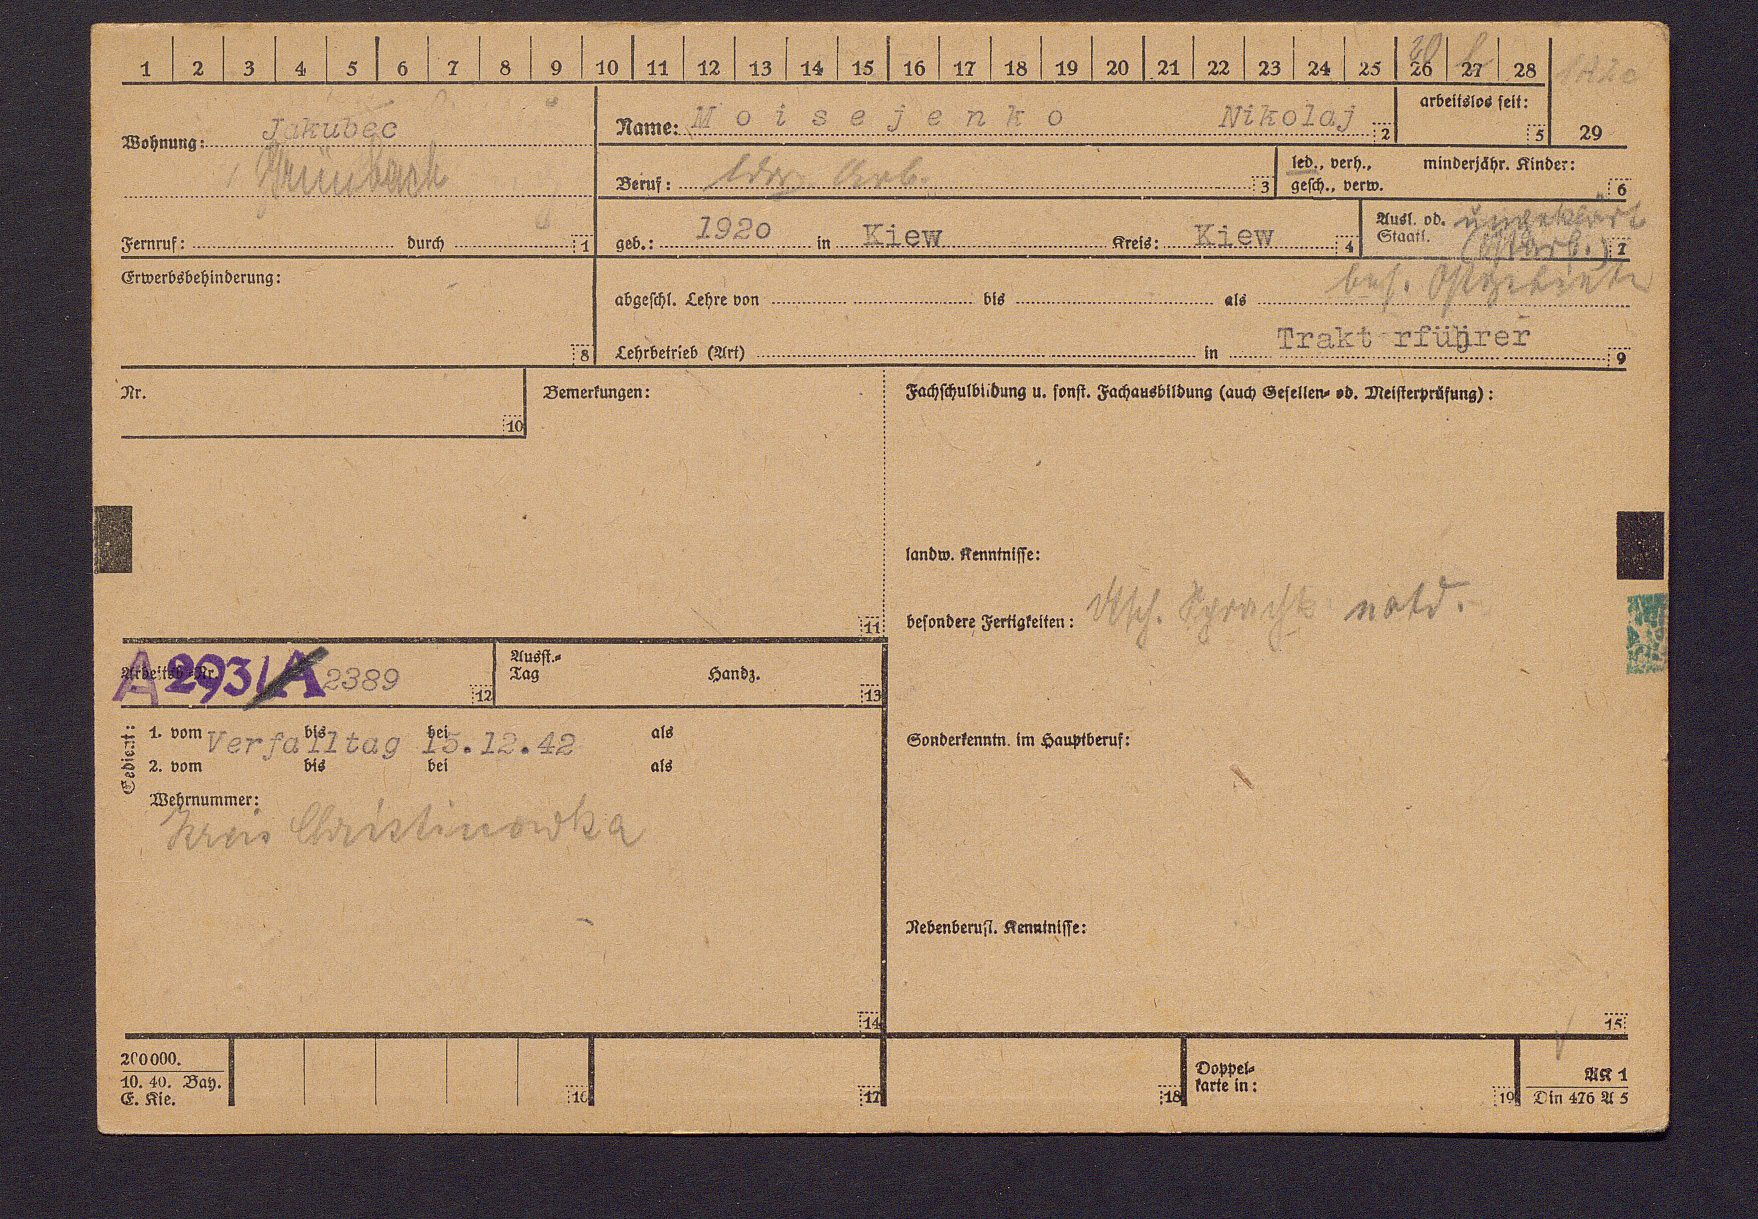 1 2 3 4 5 6 7 8 9 10 11 12 13 14 15 16 17 18 19 20 21 22 23 24 25 26 27 28
20
arbeitslos seit:
5 29
Wohnung: Jakubec
Grünbach
Fernruf: durch 1
Name: Moisejenko Nikolaj 2
Beruf: ldw. Arb. 3
led., verh., minderjähr. Kinder:
gesch., verw. 6
geb.: 1920 in Kiew Kreis: Kiew 4
Ausl. od. ungeklärt
Staatl. (Ostarb.) 7
bes. Ostgebiete
Erwerbsbehinderung:
8
abgeschl. Lehre von bis als
Lehrbetrieb (Art) in Trakt rführer 9
Nr.
10
Bemerkungen:
11
Fachschulbildung u. sonst. Fachausbildung (auch Gesellen- od. Meisterprüfung):
landw. Kenntnisse:
besondere Fertigkeiten: dtsch. Sprache notd.
Arbeitsb.-Nr. A 293/A 2389 12
Ausst.-
Tag Handz. 13
Gedient:
1. vom bis bei als
Verfalltag 15.12.42
2. vom bis bei als
Wehrnummer:
Kreis Christinowka
14
Sonderkenntn. im Hauptberuf:
Nebenberufl. Kenntnisse:
15
200000.
10. 40. Bay.
E. Kie.
16 17 18
Doppel-
karte in: 19
AK 1
Din 476 A 5